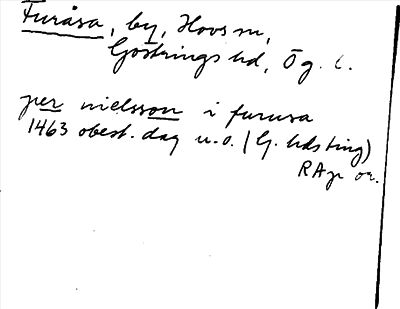 Furåsa, by, Hovs sn,
Göstrings hd, Ög. l.
per nielsson i furusa
1463 obest. dag u.o. (G. hds ting)
RAp or.